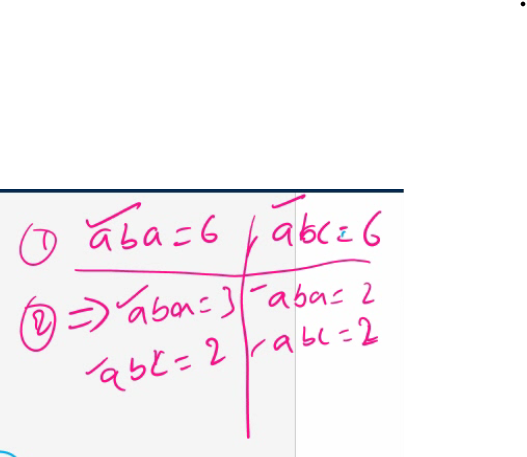 ① aba = 6 , abc = 6
② ⇒ aba = 3 aba = 2
abc = 2 abc = 2